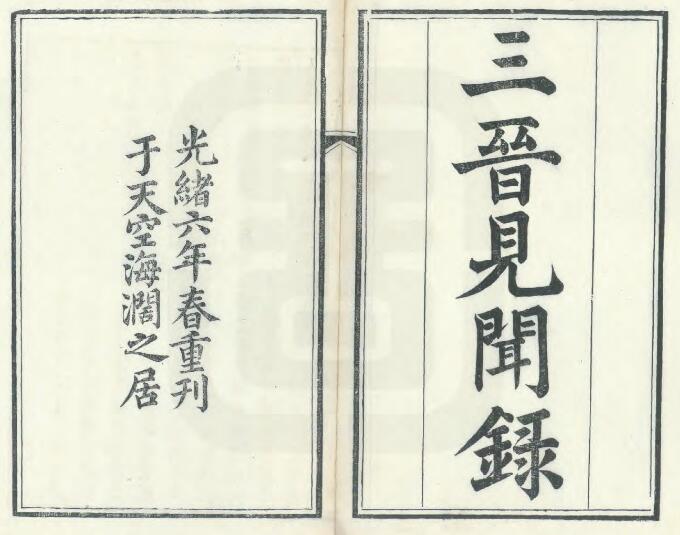 三晉見聞録
光緒六年春重刊
于天空海濶之居